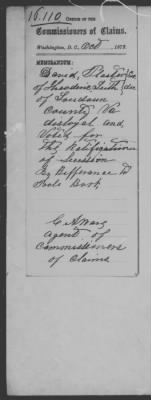 16.110
OFFICE OF THE
Commissioners of Claims.
Washington, D. C., Oct 187
MEMORANDUM:
David
of Theodore
of Loudoun
County Va
disloyal and
Voted for
The Ratification
of Secession
By Refferance to
Polls Book
C A
Agent of
Commissioners
of Claims